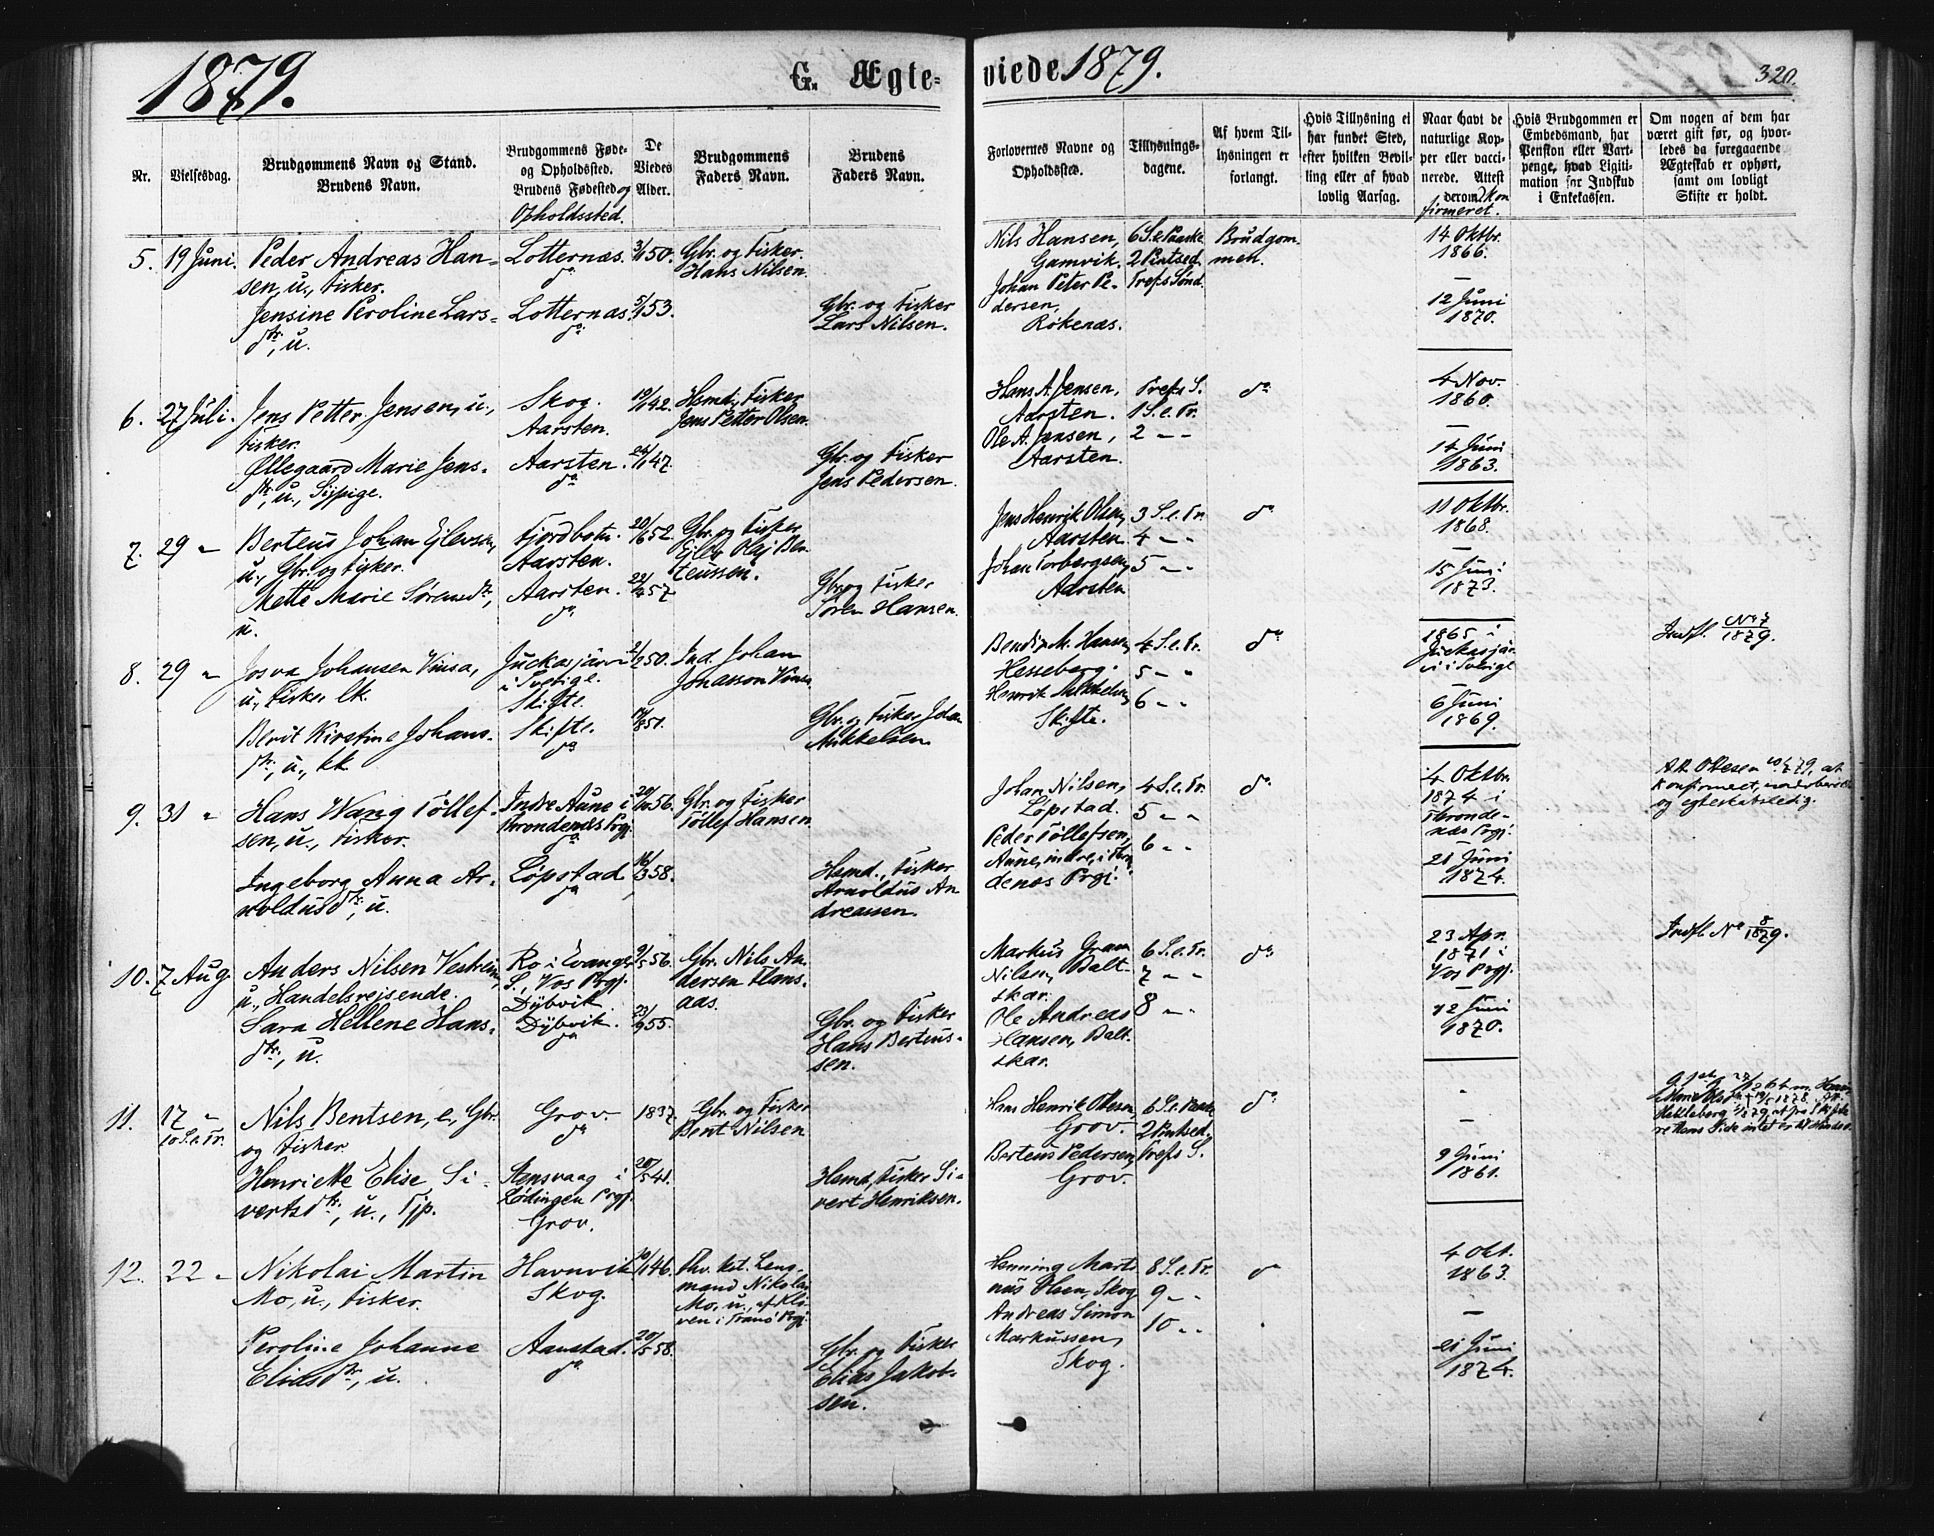 1879.
G. Ægte-
viede 1879.
320.
Nr.
Vielsesdag.
Brudgommens Navn og Stand.
Brudens Navn.
Brudgommens Føde-
og Opholdssted.
Brudens Fødested og
Opholdssted.
De
Viedes
Alder.
Brudgommens
Faders Navn.
Brudens
Faders Navn.
Forlovernes Navne og
Opholdsted.
Tillysnings-
dagene.
Af hvem Til-
lysningen er
forlangt.
Hvis Tillysning ei
har fundet Sted,
efter hvilken Bevil-
ling eller af hvad
lovlig Aarsag.
Naar havt de
naturlige Kop-
per eller vacci-
nerede. Attest
derom? Kon
firmeret.
Hvis Brudgommen er
Embedsmand, har
Pension eller Vart-
penge, hvad Ligiti-
mation for Indskud
i Enkekassen.
Om nogen af dem har
været gift før, og hvor-
ledes da foregaaende
Ægteskab er ophørt,
samt om lovligt
Skifte er holdt.
5. 19 Juni.
Peder Andreas Han-
sen, u., Fisker.
Jensine Peroline Lars-
dtr, u.
Lotternæs.
do
Lotternæs.
do
3/1 50.
5/1 53.
Gbr. og Fisker.
Hans Nilsen.
Gbr. og Fisker
Lars Nilsen.
Nils Hansen,
Gamvik.
Johan Peter Pe-
dersen,
Rökenæs.
6 S. e. Paaske
2 Pintsed.
Trefs Sönd.
Brudgom-
men.
14 Oktbr.
1866.
—
12 Juni
1870.
6. 27 Juli.
Jens Petter Jensen, u.,
Fisker.
Øllegaard Marie Jens-
dtr, u., Sypige.
Skog.
Aarsten.
Aarsten.
do
19/1 42.
24/1 47.
Hsmd., Fisker
Jens Petter Olsen.
Gbr. og Fisker
Jens Pedersen.
Hans A. Jensen,
Aarsten.
Ole A. Jensen,
Aarsten.
Trefs S.
1 S. e. Tr.
2 " "
do
4 Nov.
1860.
—
14 Juni
1863.
7. 29 "
Berteus Johan Eilevsen,
u., Gbr. og Fisker.
Mette Marie Sørensdtr,
u.
Fjordbotn.
Aarsten.
Aarsten.
do
20/6 52.
22/4 57
Gbr. og Fisker
Eilev Olaj Ber-
teussen.
Gbr. og Fisker
Sören Hansen.
Jens Henrik Olsen,
Aarsten.
Johan Torbergsen,
Aarsten
3 S. e. Tr.
4 " "
5 " "
do
11 Oktbr.
1868.
—
15 Juni
1873.
8. 29 "
Josva Johansen Vinsa,
u., Fisker, lk.
Berit Kirstine Johans-
dtr, u., kk.
Juckasjärvi
i Sverige.
Skifte.
Skifte.
do
2/2 50.
Ind. Johan
Jonasson Vinsa.
Gbr. og Fisker Johan
Mikkelsen.
Hesseberg.
Henrik Mikkelsen,
Skifte.
4 S. e. Tr.
5 " "
6 " "
do
1865 i
Juckasjär-
vi i Sverige
6 Juni
1869.
Indfl. No 7
1879.
9. 31 "
Hans Wang Töllef-
sen, u., Fisker.
Ingeborg Anna Ar-
noldusdtr, u.
Indre Aune i
Throndenæs Prgj.
do
Löpstad
do
20/10 56.
16/3 58.
Gbr. og Fisker
Töllef Hansen.
Hsmd., Fisker
Arnoldus An-
dreassen.
Johan Nilsen,
Löpstad.
Peder Töllefsen,
Aune, indre, i Thron-
denæs Prgj.
4 S. e. Tr.
5 " "
6 " "
do
4 Oktbr.
1874 i
Thronde-
næs Prgj.
—
21 Juni
1874.
og egteskabsledig.
10. 7 Aug.
Anders Nilsen Vestrein,
u., Handelsrejsende.
Sara Hellene Hans-
dtr, u.
Ro i Evanger
S., Vos Prgj.
Dybvik
Dybvik.
do
9/5 56.
23/9 55.
Gbr. Nils An-
dersen Flans-
aas.
Gbr. og Fisker
Hans Berteus-
sen.
Markus Gram
Nilsen, Balt-
skar.
Ole Andreas
Hansen, Balt-
skar.
6 S. e. Tr.
7 " "
8 " "
do
23 Apr.
1871 i
Vos Prgj.
—
12 Juni
1870.
Indfl. No 8
1879.
11. 17 "
10 S. e. Tr.
Nils Bentsen, e., Gbr.
og Fisker
Henriette Elise Si-
vertsdtr, u., Tjp.
Grov
do
Stensvaag i
Lödingen Prgj.
Grov.
1837.
20/5 41.
Gbr. og Fisker
Bent Nilsen
Hsmd., Fisker Si-
vert Henriksen.
Hans Henrik Olsen
Grov.
Berteus Pedersen,
Grov.
6 S. e. Paaske
2 Pintsed.,
Trefs S.
do
—
9 Juni
1861.
12. 22 "
Nikolai Martin
Mo, u., Fisker.
Peroline Johanne
Eliasdtr, u.
Havnvik
Skog.
Aanstad.
do
10/1 46.
20/5 58.
Fhv. kst. Lens-
mand Nikolai
Mo, u., af Kli-
ven i Tranö Prgj.
Gbr. og Fisker
Elias Jakob-
sen.
Henning Marti-
nus Olsen, Skog
Andreas Simon
Markussen,
Skog.
8 S. e. Tr.
9 " "
10 " "
do
4 Okt.
1863.
—
21 Juni
1874.